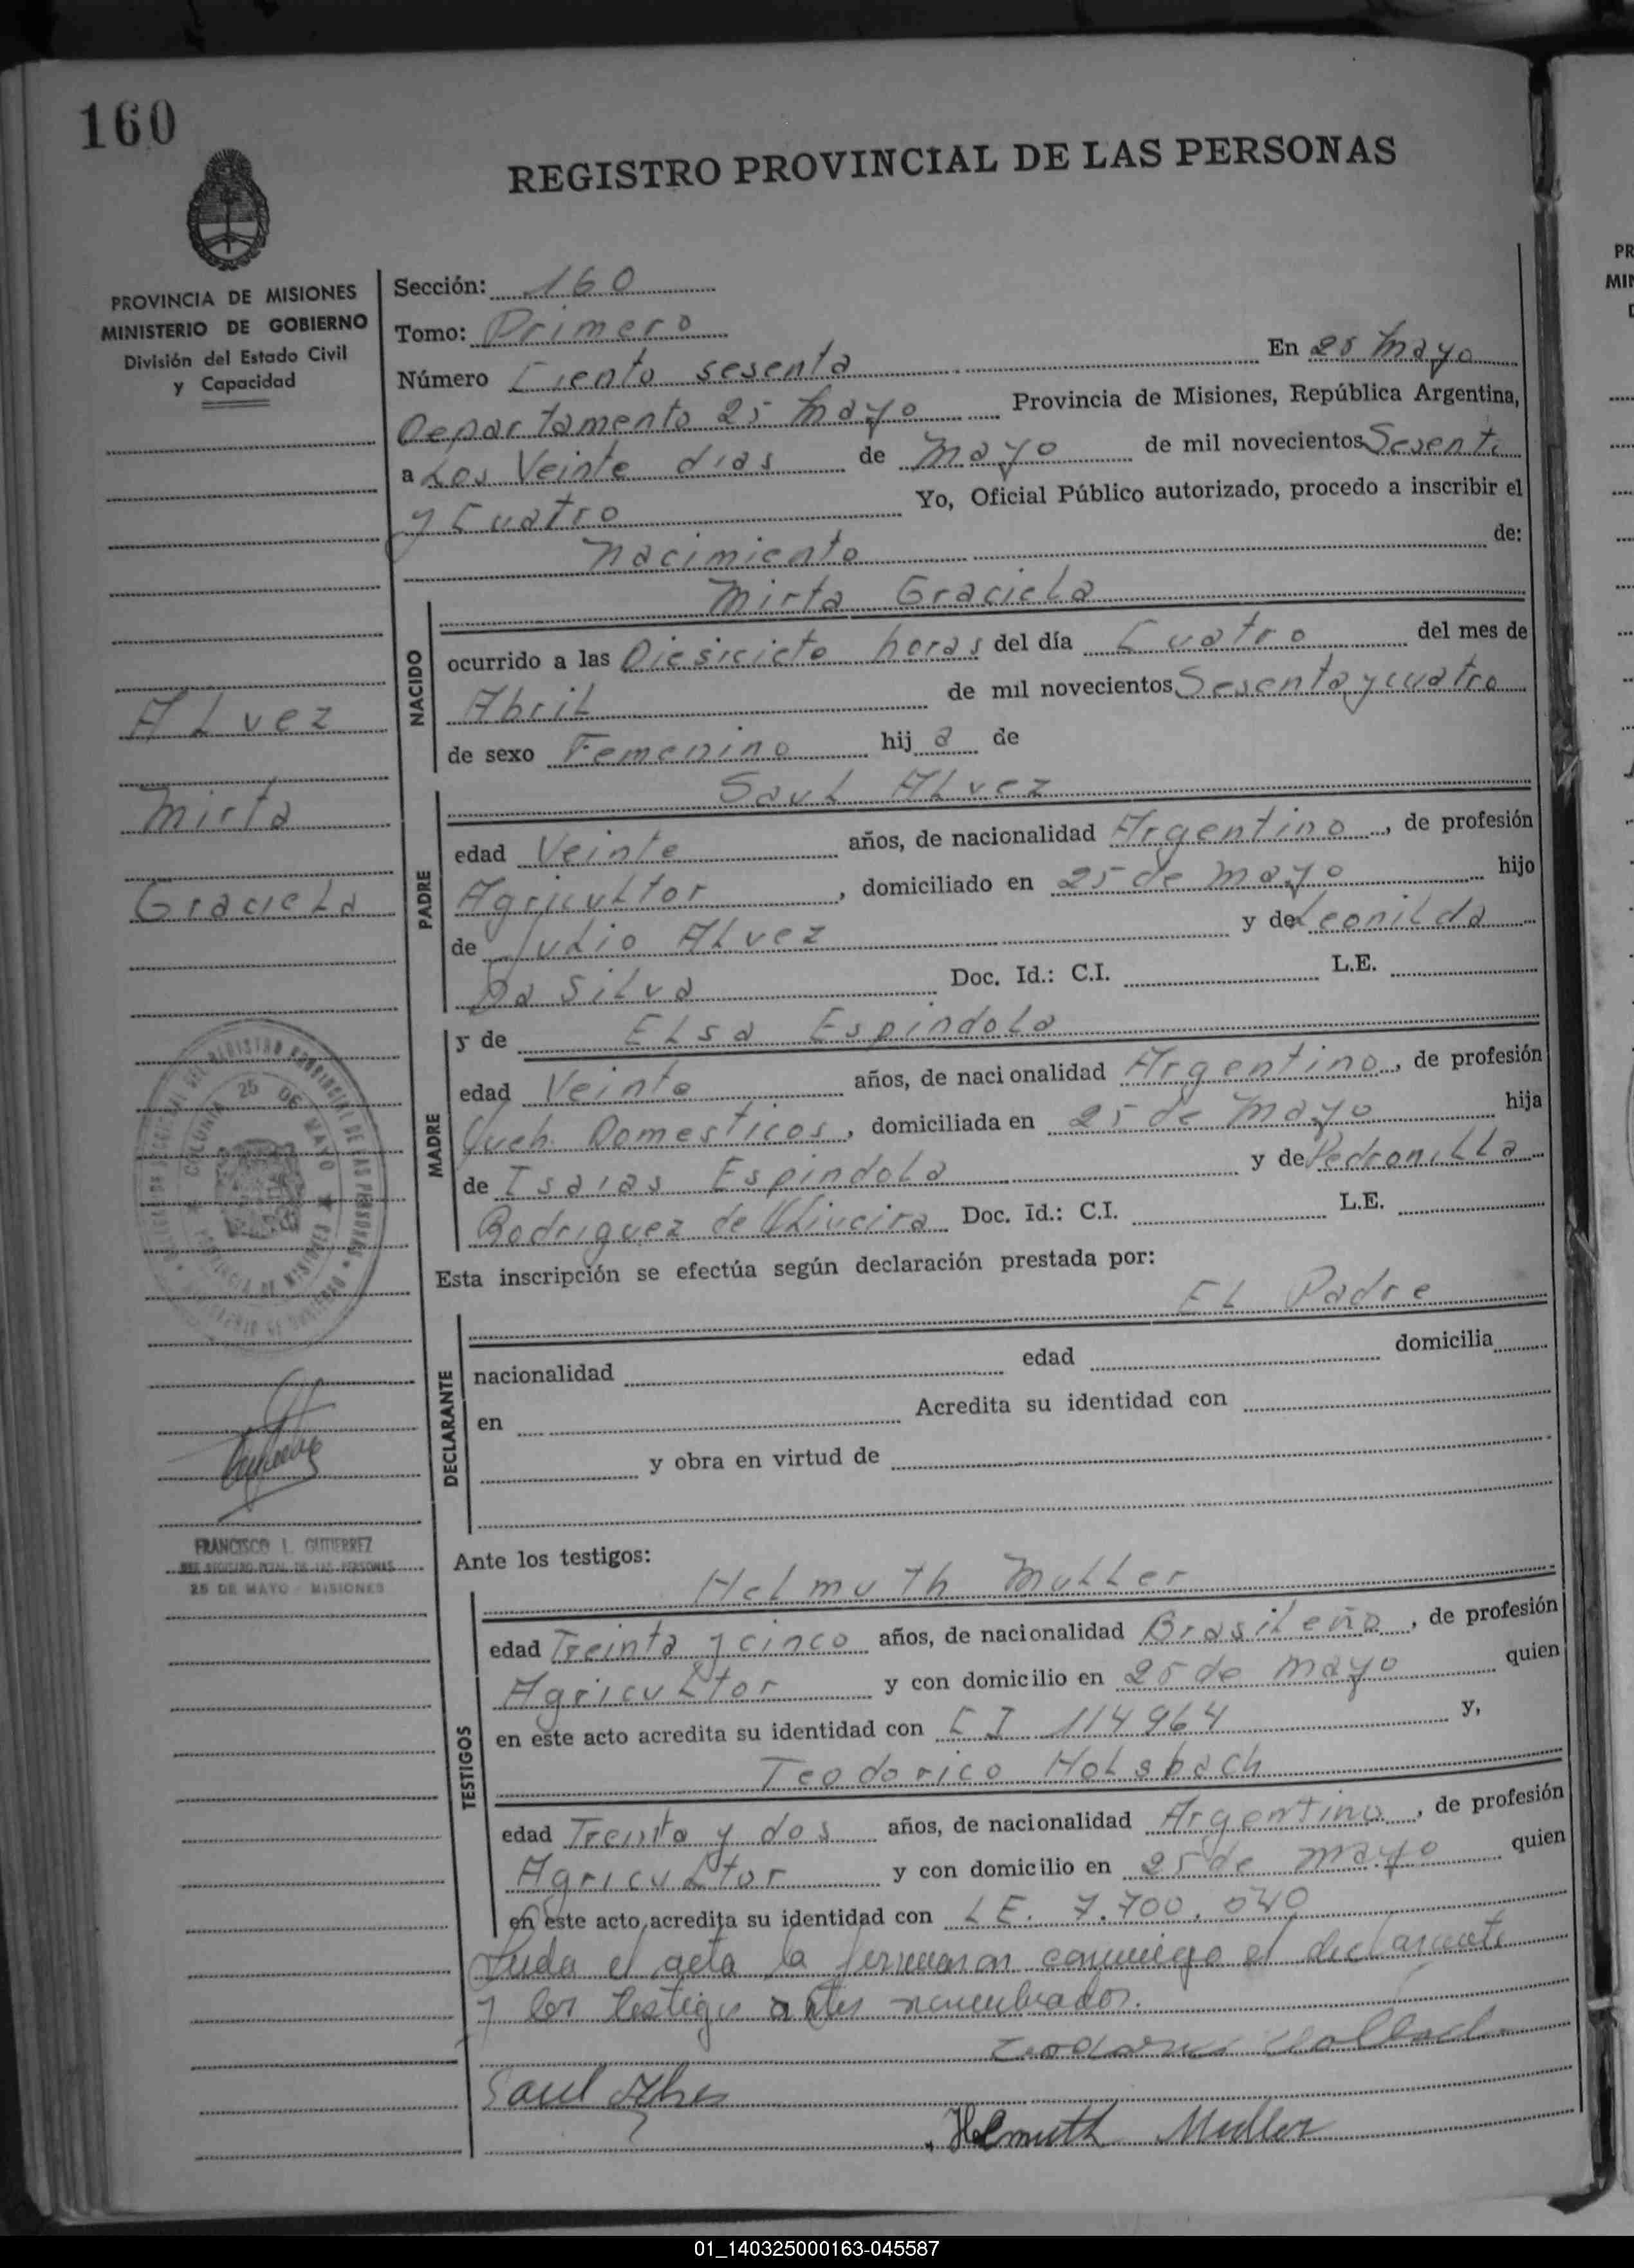 160
REGISTRO PROVINCIAL DE LAS PERSONAS
PROVINCIA DE MISIONES
MINISTERIO DE GOBIERNO
División del Estado Civil
y Capacidad
Sección: 160
Tomo: Primero
Número Ciento sesenta En 25 Mayo
Departamento 25 Mayo Provincia de Misiones, República Argentina,
a Los Veinte dias de Mayo de mil novecientos Sesenta
y Cuatro Yo, Oficial Público autorizado, procedo a inscribir el
nacimiento de:
Mirta Graciela
NACIDO
ocurrido a las Diesiciete horas del día Cuatro del mes de
Abril de mil novecientos Sesenta y cuatro
de sexo Femenino hij a de
ALvez
Mirta
GracieLa
PADRE
SauL ALvez
edad Veinte años, de nacionalidad Argentino, de profesión
AgricuLtor, domiciliado en 25 de Mayo hijo
de Julio ALvez y de Leonilda
Da SiLva Doc. Id.: C.I. L.E.
MADRE
y de ELsa EspindoLa
edad Veinte años, de nacionalidad Argentino, de profesión
Queh. Domesticos, domiciliada en 25 de Mayo hija
de Isaias EspindoLa y de PedroniLLa
Rodriguez de Oliveira Doc. Id.: C.I. L.E.
COLONIA 25 DE MAYO
PROVINCIA DE MISIONES
Esta inscripción se efectúa según declaración prestada por:
EL Padre
DECLARANTE
nacionalidad edad domicilia
en Acredita su identidad con
y obra en virtud de
FRANCISCO L. GUTIERREZ
JEFE REGISTRO PCIAL. DE LAS PERSONAS
25 DE MAYO - MISIONES
Ante los testigos:
TESTIGOS
Helmuth MuLLer
edad Treinta y cinco años, de nacionalidad BrasiLeño, de profesión
AgricuLtor y con domicilio en 25 de Mayo quien
en este acto acredita su identidad con CI 114964 y,
Teodorico HoLsbach
edad Treinta y dos años, de nacionalidad Argentino, de profesión
AgricuLtor y con domicilio en 25 de Mayo quien
en este acto acredita su identidad con LE. 7.700.040
Leida el acta la firmaron conmigo el declarante
y los testigos antes nombrados.
Saul Alves
Helmuth Muller
PR
MIN
01_140325000163-045587